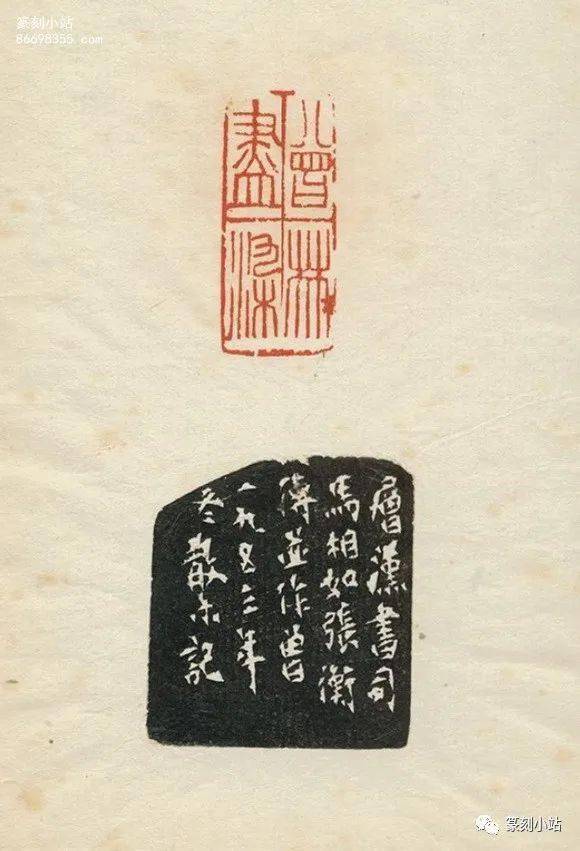 篆刻小站
86698355.com
曾林
盡染
層漢書司
馬相如張衡
傳並作曾
一九五三年
冬散木記
篆刻小站